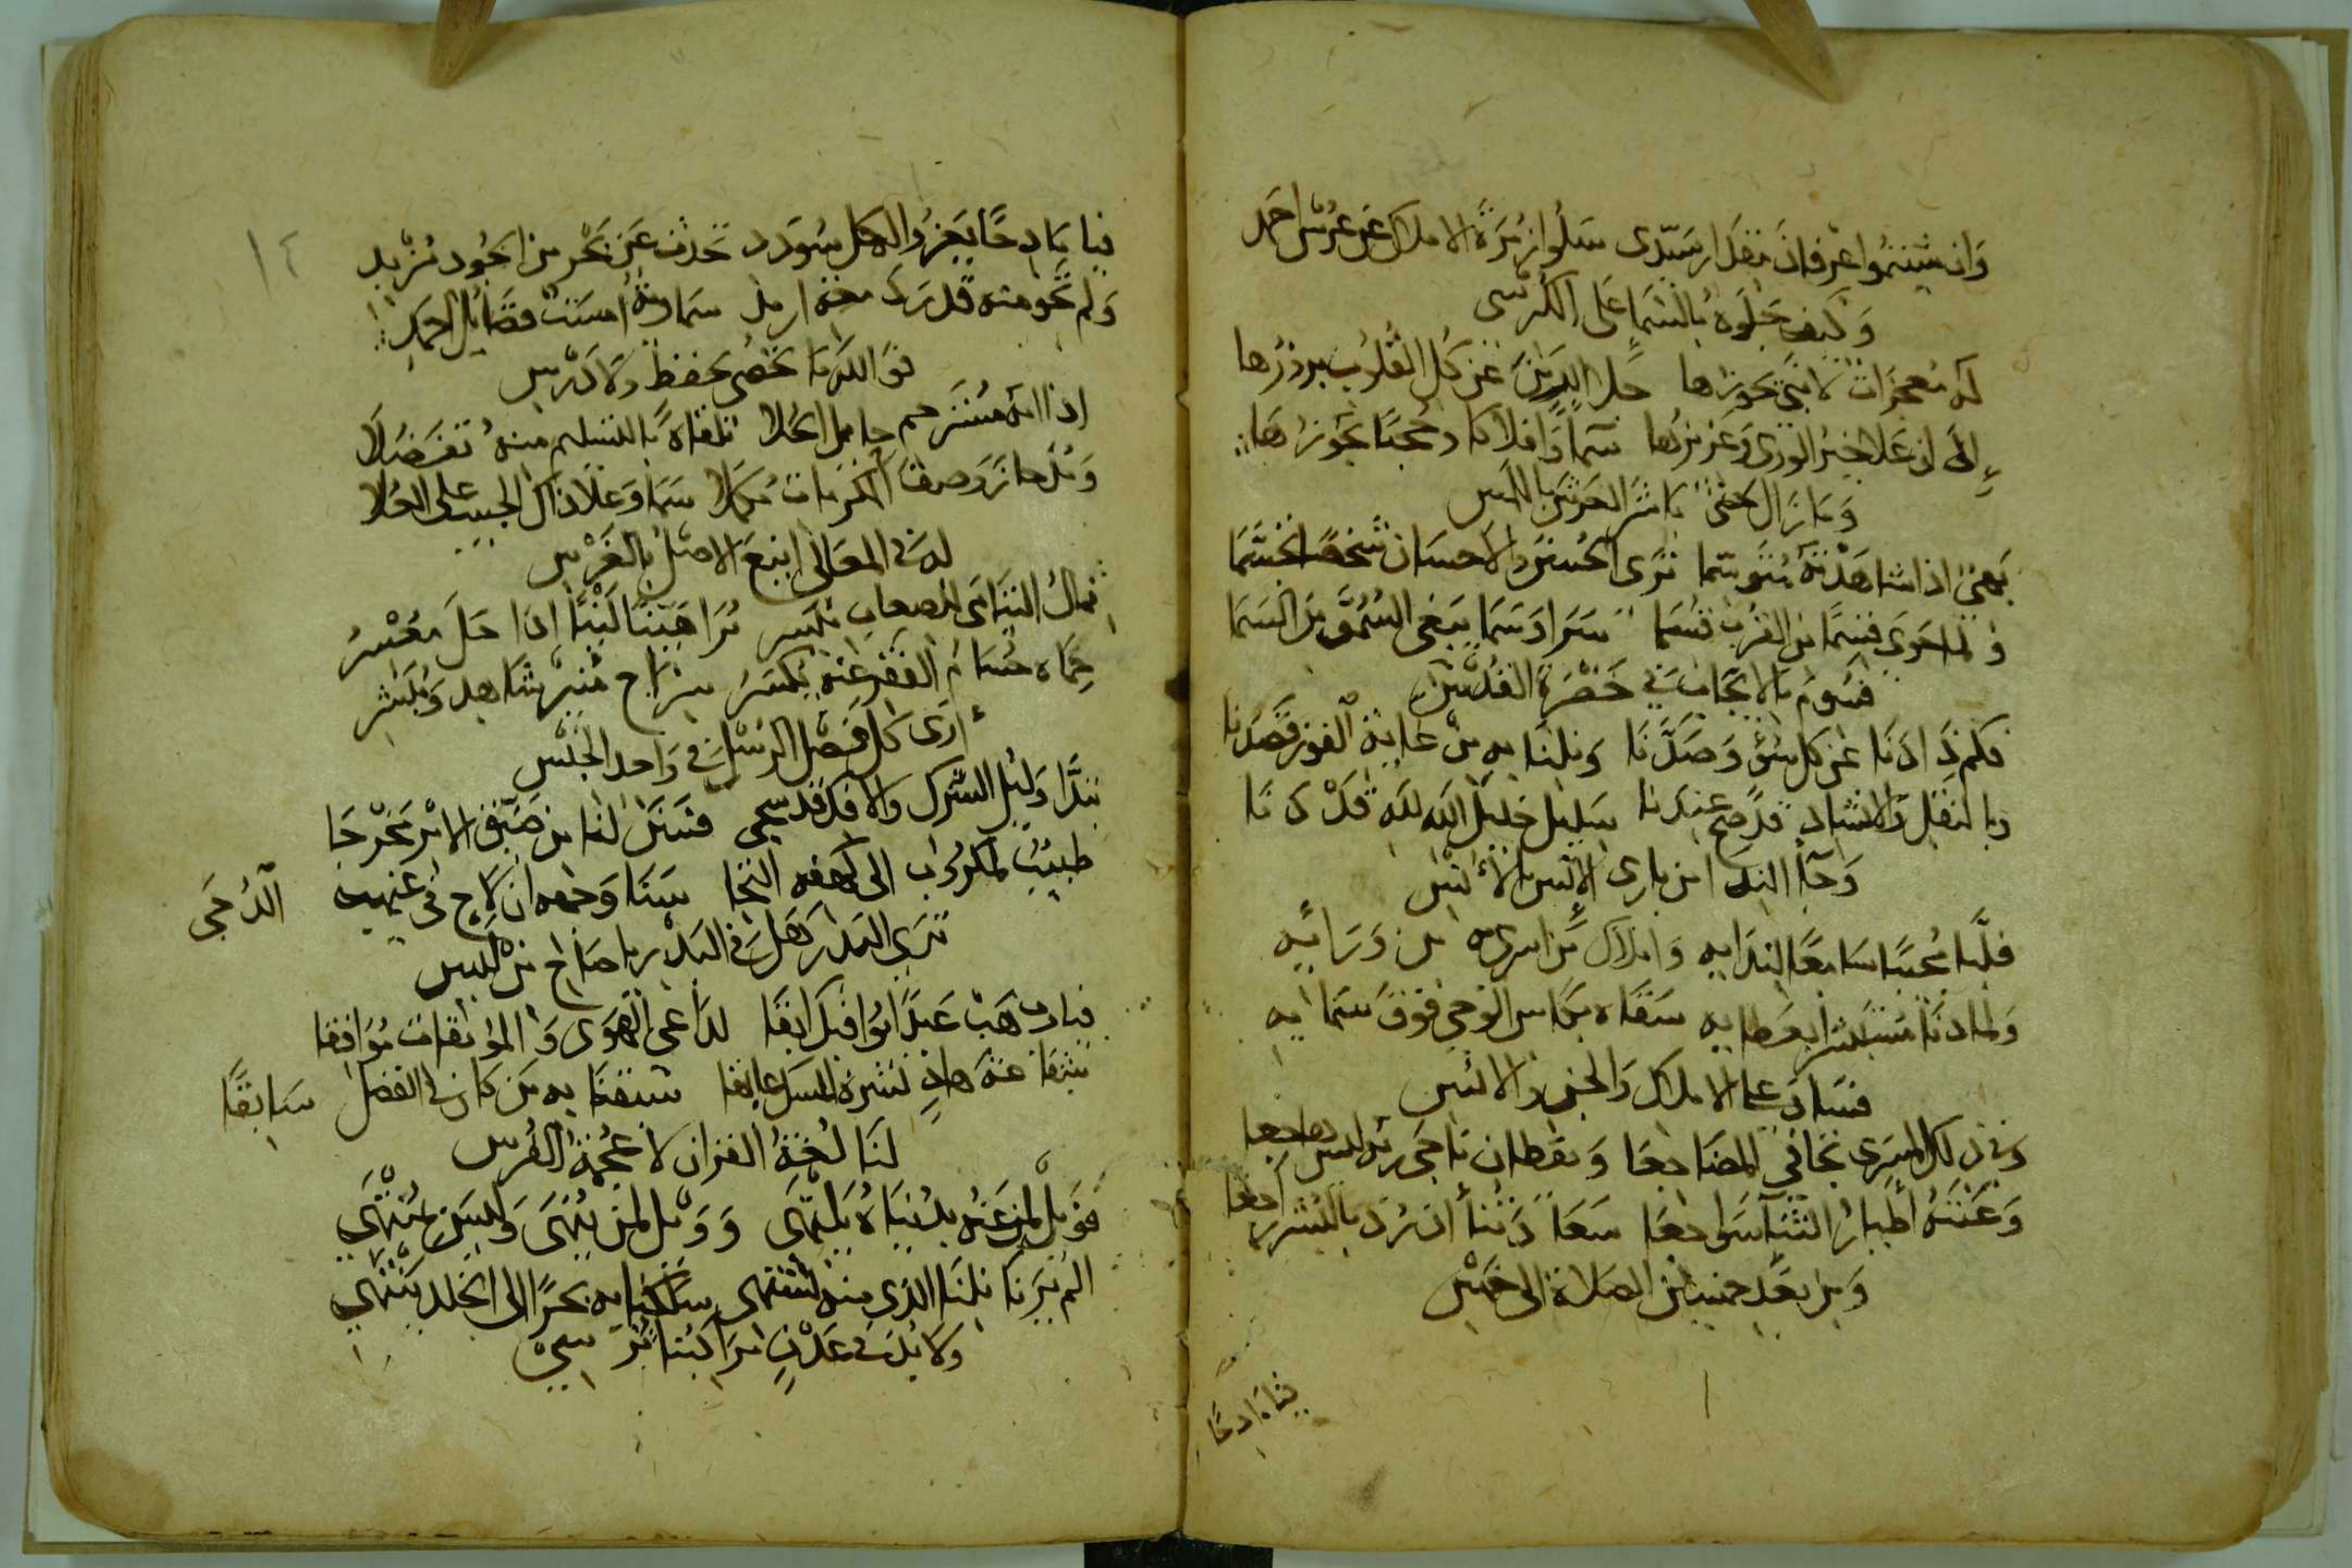 وَان شيتموا عرفان مقدار سيدى سلوا زمرة الاملاك عن عرس احمد
وَكيف جلوه بالسما على الكرسى
له معجزات لا نبى يحوزها جلا الدين عن كل القلوب بروزها
الى ان علا خير الورى وعزيزها سما وافلاكا وحجبا يجوزها
وَما زال حتى باشر العرش باللمس
بهى اذا شاهدته متوسما ترى الحسن والاحسان شخصا تجسما
ولما حوى قسما من القرب قسما سرا وسما يبغى السمو من السما
فسوم بالايجاب فى حضرة القدس
فكم ذادنا عن كل سوء وصدنا ونلنا به من غاية الفوز قصدنا
وبالنقل والاسناد قد صح عندنا سليل خليل الله لله قد دنا
وجا الندا من بارى الانس بالانس
فلبا مجيبا سامعا لندايه واملاك من اسرى به من ورائيه
ولما دنا مستبشرا بعطايه سقاه بكاس الوحى فوق سمايه
فساد على الاملاك والجن والانس
وفى ذلك المسرى تجافى المضاجعا ويقظان ناجى ربه ليس هاجعا
وغنته اطيار الثنا سواجعا سعا ودنا ان رد بالبشر راجعا
ومن بعد خمسين الصلاة الى خمس
فيا مادحا
١٤
فيا مادحا يعزو الى كل سودد تحدث عن بحر من الجود مزبد
ولم تحو منه قدر سما وبه امست فضايل احمد
فو الله ما تحصى بحفظ ولا درس
اذا امه مسترحم حامل الكلا تلقاه بالتسليم منه تفضلا
ومذ حاز وصف المكرمات مكملا سما وعلا ذاك الحبيب على العلا
له فى المعالى اينع الاصل بالغرس
ثمال اليتامى للصعاب ميسر تراه هينا لينا اذا حل معسر
حماه حسام الفقر عنه يكسر سراج منير شاهد ومبشر
ارى كل فضل الرسل فى واحد الجنس
تبدا وليل الشرك والافك قد سجى فسن لنا من ضيق الامر مخرجا
طبيب لمكروب الى كهفه التجا سنا وجهه ان لاح فى غيهب الدجى
ترى البدر هل فى البدر يا صاح من لبس
فيارب هب عبدا يوافيك ابقا لداعى الهوى والموبقات موافقا
ثنا عنه هاد نشره المسك عابقا سبقنا به من كان فى الفضل سابقا
لنا لغة القران لا عجمة الفرس
فويل لمن عنه بدنياه يلتهى وويل لمن ينهى وليس بمنتهى
الم ترنا نلنا الذى منه نشتهى سلكنا به بحرا الى الخلد ينتهى
ولا بد فى عدن مراكبنا ترسى